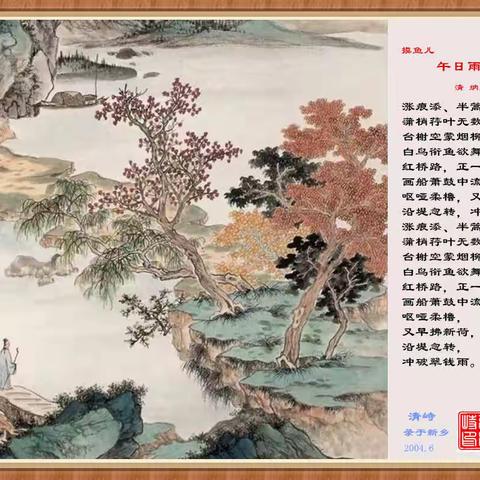 摸鱼儿
午日雨
清 纳
涨痕添、半篙
蒲梢荇叶无数
台榭空蒙烟柳
白鸟衔鱼欲舞
红桥路，正一
画船箫鼓中流
呕哑柔橹，又
沿堤忽转，冲
涨痕添、半篙
蒲梢荇叶无数
台榭空蒙烟柳
白鸟衔鱼欲舞
红桥路，正一
画船箫鼓中流
呕哑柔橹，
又早拂新荷，
沿堤忽转，
冲破翠钱雨。
清峙
录于新乡
2004.6